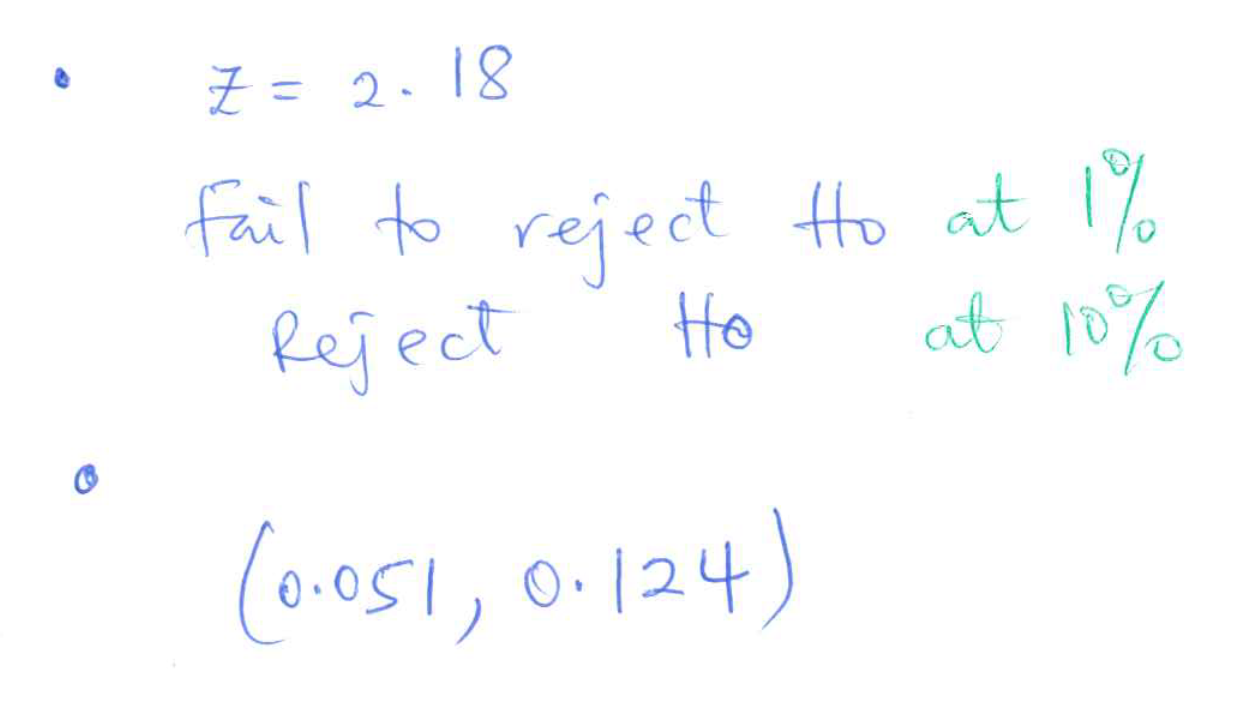 • Z = 2.18
fail to reject Ho at 1%
Reject Ho at 10%
• (0.051, 0.124)